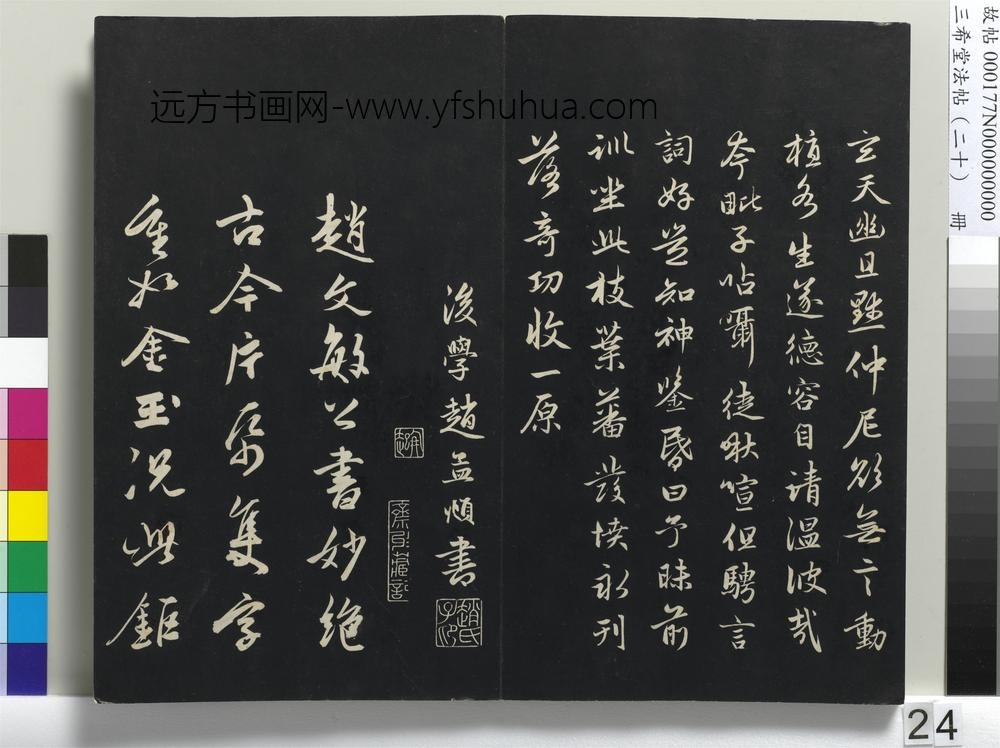 故帖 000177N000000000
三希堂法帖（二十） 册
远方书画网-www.yfshuhua.com
玄天幽且默仲尼欲無言動
植各生遂德容自清温彼哉
夸毗子呫囁徒啾喧但騁言
詞好豈知神鑒昏曰予昧前
訓坐此枝葉蕃發憤永刊
落奇功收一原
後學趙孟頫書
趙氏子昂
趙文敏公書妙絶
古今片帋隻字
重如金玉況此鉅
24